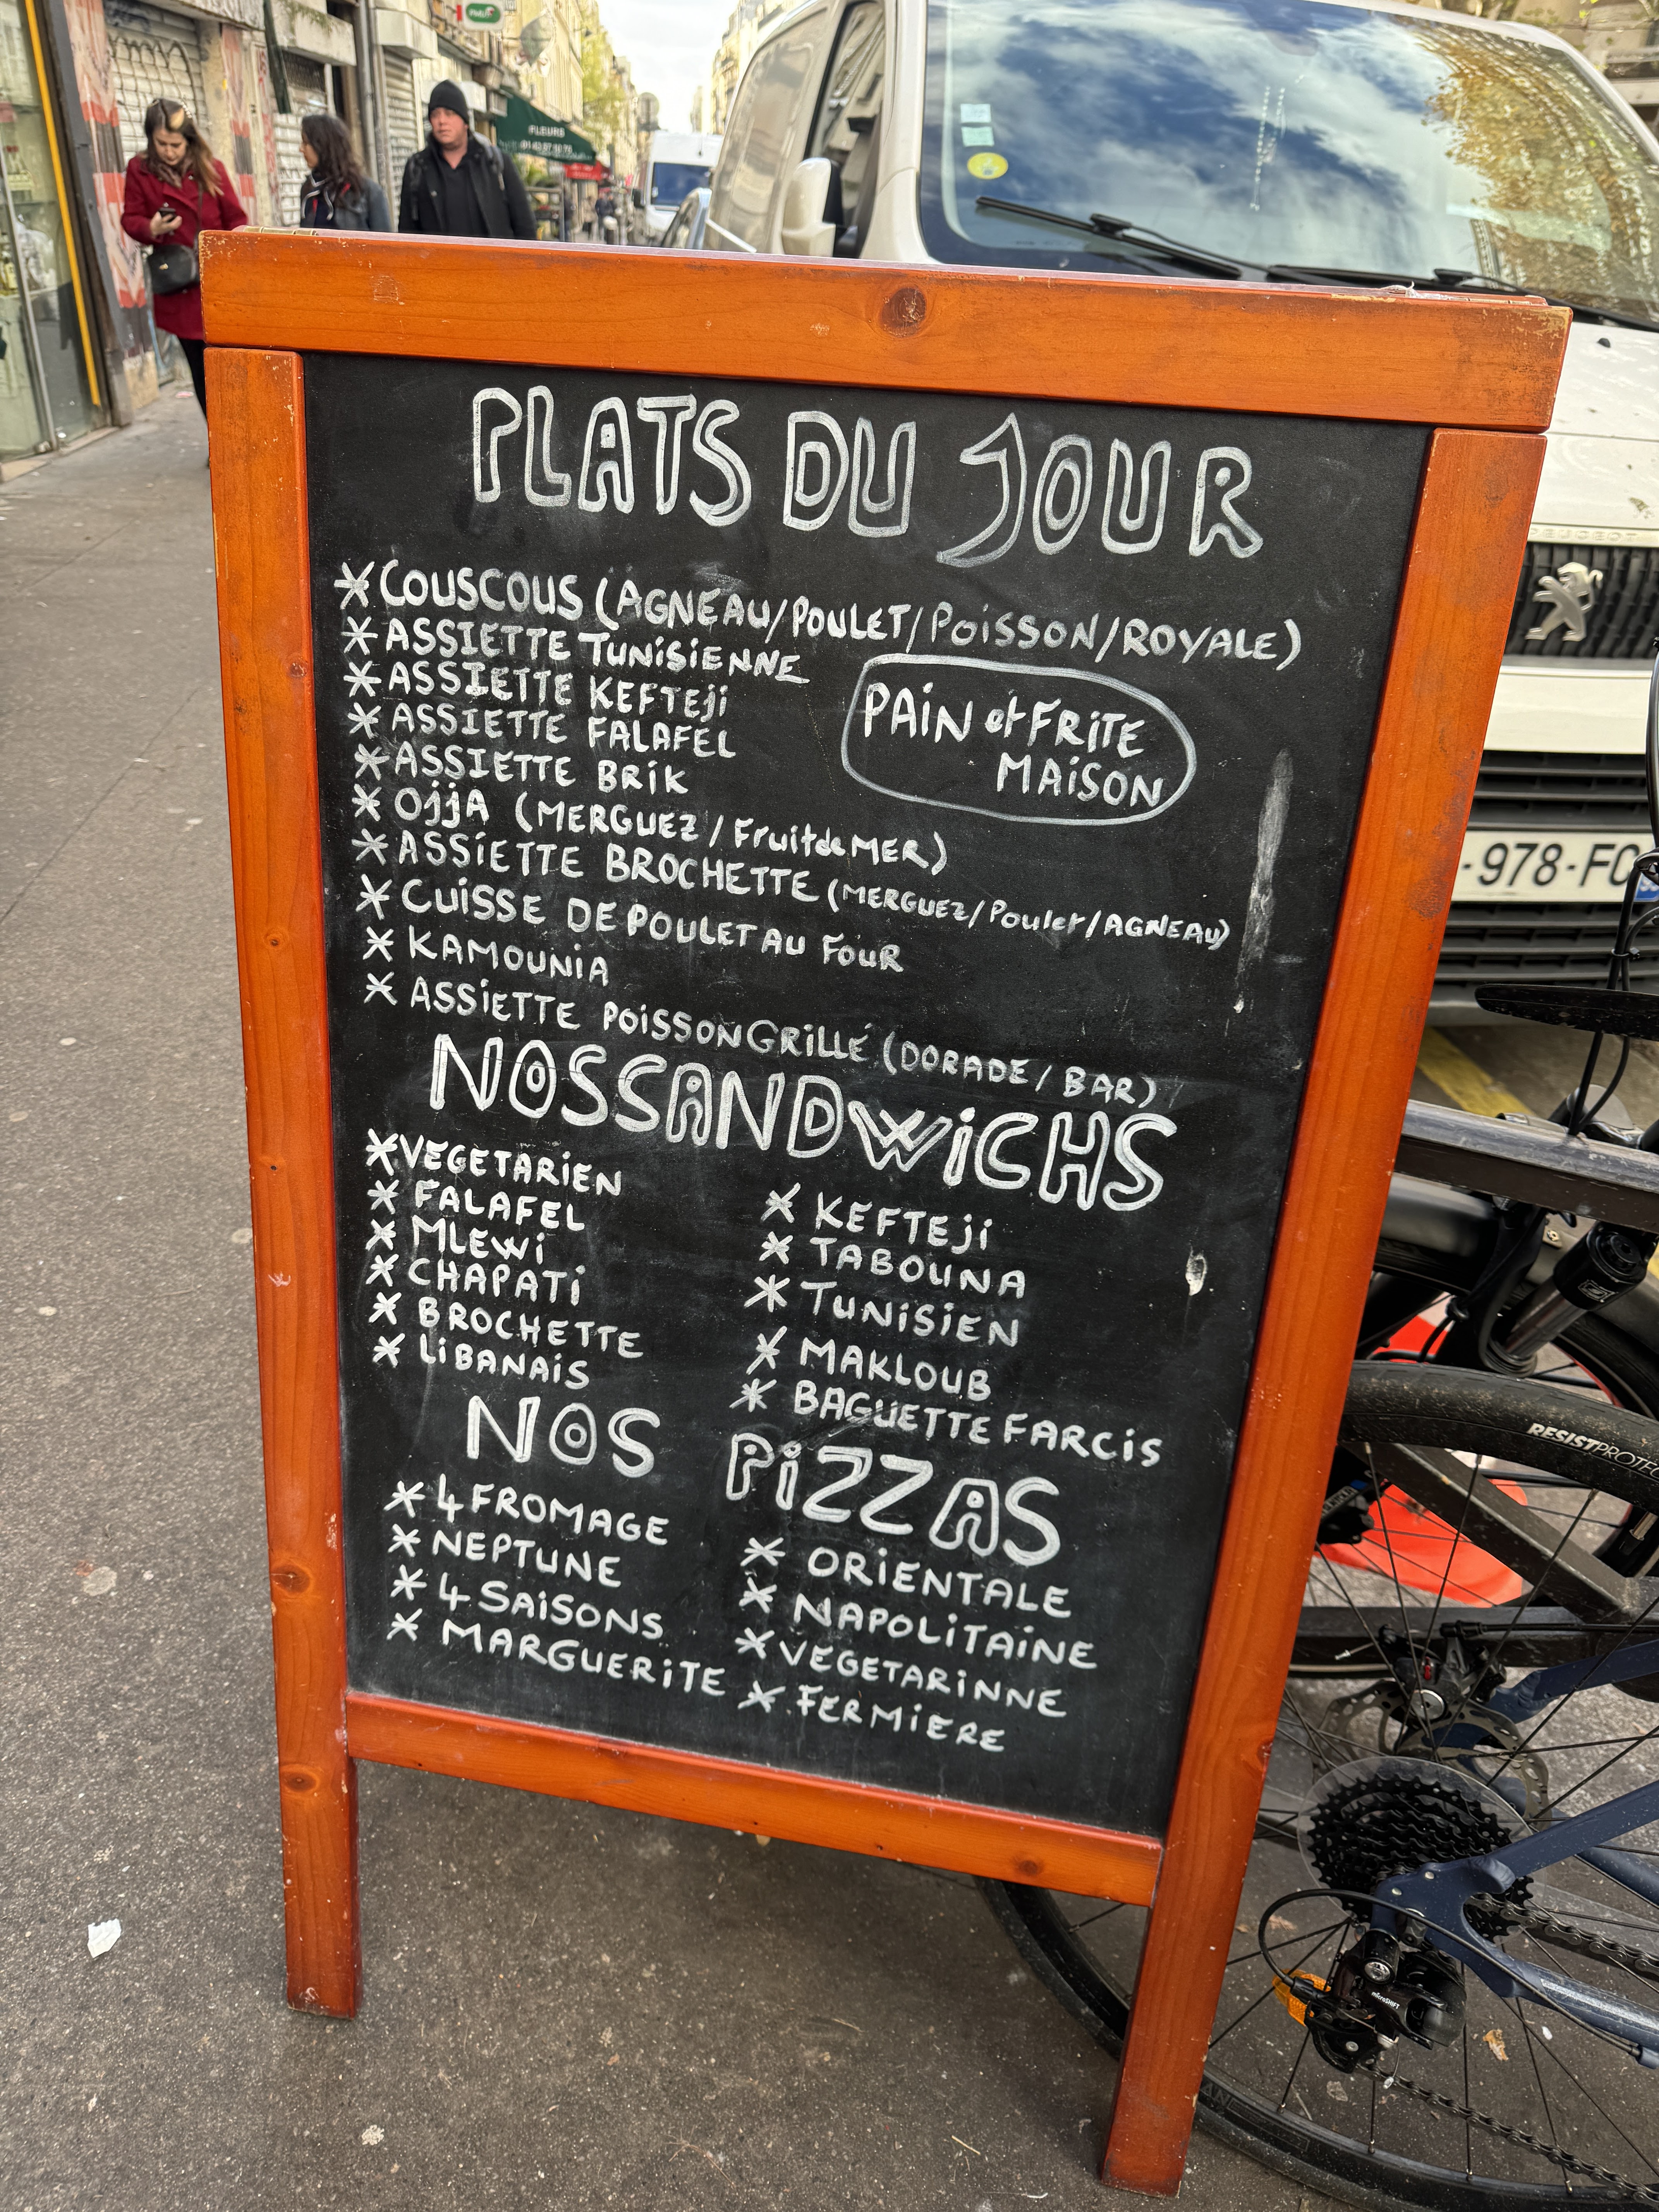 PMU
FLEURS
PLATS DU JOUR
* COUSCOUS (AGNEAU/POULET/POISSON/ROYALE)
* ASSIETTE TUNISIENNE
* ASSIETTE KEFTEJI
* ASSIETTE FALAFEL
* ASSIETTE BRIK
PAIN et FRITE
MAISON
* OJJA (MERGUEZ/Fruit de MER)
* ASSIETTE BROCHETTE (MERGUEZ/Poulet/AGNEAU)
* CUISSE DE POULET AU FOUR
* KAMOUNIA
* ASSIETTE POISSON GRILLÉ (DORADE/BAR)
NOS SANDWICHS
* VEGETARIEN
* FALAFEL
* MLEWI
* CHAPATI
* BROCHETTE
* LIBANAIS
* KEFTEJI
* TABOUNA
* TUNISIEN
* MAKLOUB
* BAGUETTE FARCIS
NOS PIZZAS
* 4 FROMAGE
* NEPTUNE
* 4 SAISONS
* MARGUERITE
* ORIENTALE
* NAPOLITAINE
* VEGETARINNE
* FERMIERE
PEUGEOT
-978-FC
RESISTPROTEC
microSHIFT